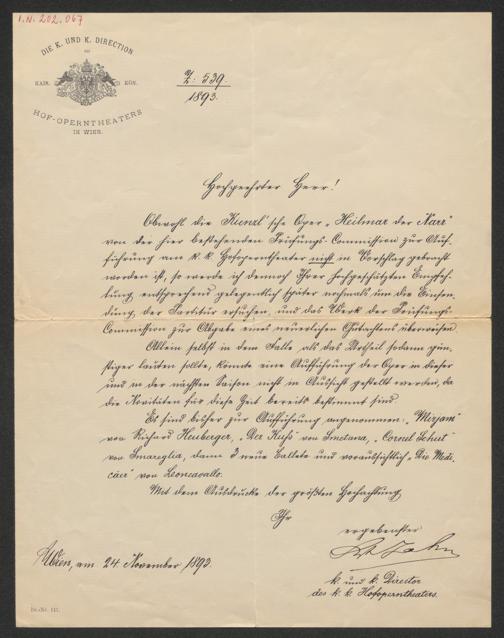 I.N. 202.067
DIE K. UND K. DIRECTION
DES
KAIS. KÖN.
HOF-OPERNTHEATERS
IN WIEN.
Z: 539.
1893.
Hochgeehrter Herr!
Obwohl die Kienzl'sche Oper „Heilmar der Narr"
von der hier bestehenden Prüfungs-Commission zur Auf-
führung am k. k. Hofoperntheater nicht in Vorschlag gebracht
worden ist, so werde ich dennoch Ihrer hochgeschätzten Empfeh-
lung entsprechend gelegentlich später nochmals um die Einsen-
dung der Partitur ersuchen, und das Werk der Prüfungs-
Commission zur Abgabe eines neuerlichen Gutachtens überweisen.
Allein selbst in dem Falle als das Urtheil sodann gün-
stiger lauten sollte, könnte eine Aufführung der Oper in dieser
und in der nächsten Saison nicht in Aussicht gestellt werden, da
die Novitäten für diese Zeit bereits bestimmt sind.
Es sind bisher zur Aufführung angenommen: „Mirjam"
von Richard Heuberger, „Der Kuß" von Smetana, „Cornel Schut"
von Smareglia, dann 3 neue Ballete und voraussichtlich „Die Medi-
cäer" von Leoncavallo.
Mit dem Ausdrucke der größten Hochachtung
Ihr
ergebenster
Jahn
Wien, am 24. November 1893.
k. und k. Director
des k. k. Hofoperntheaters.